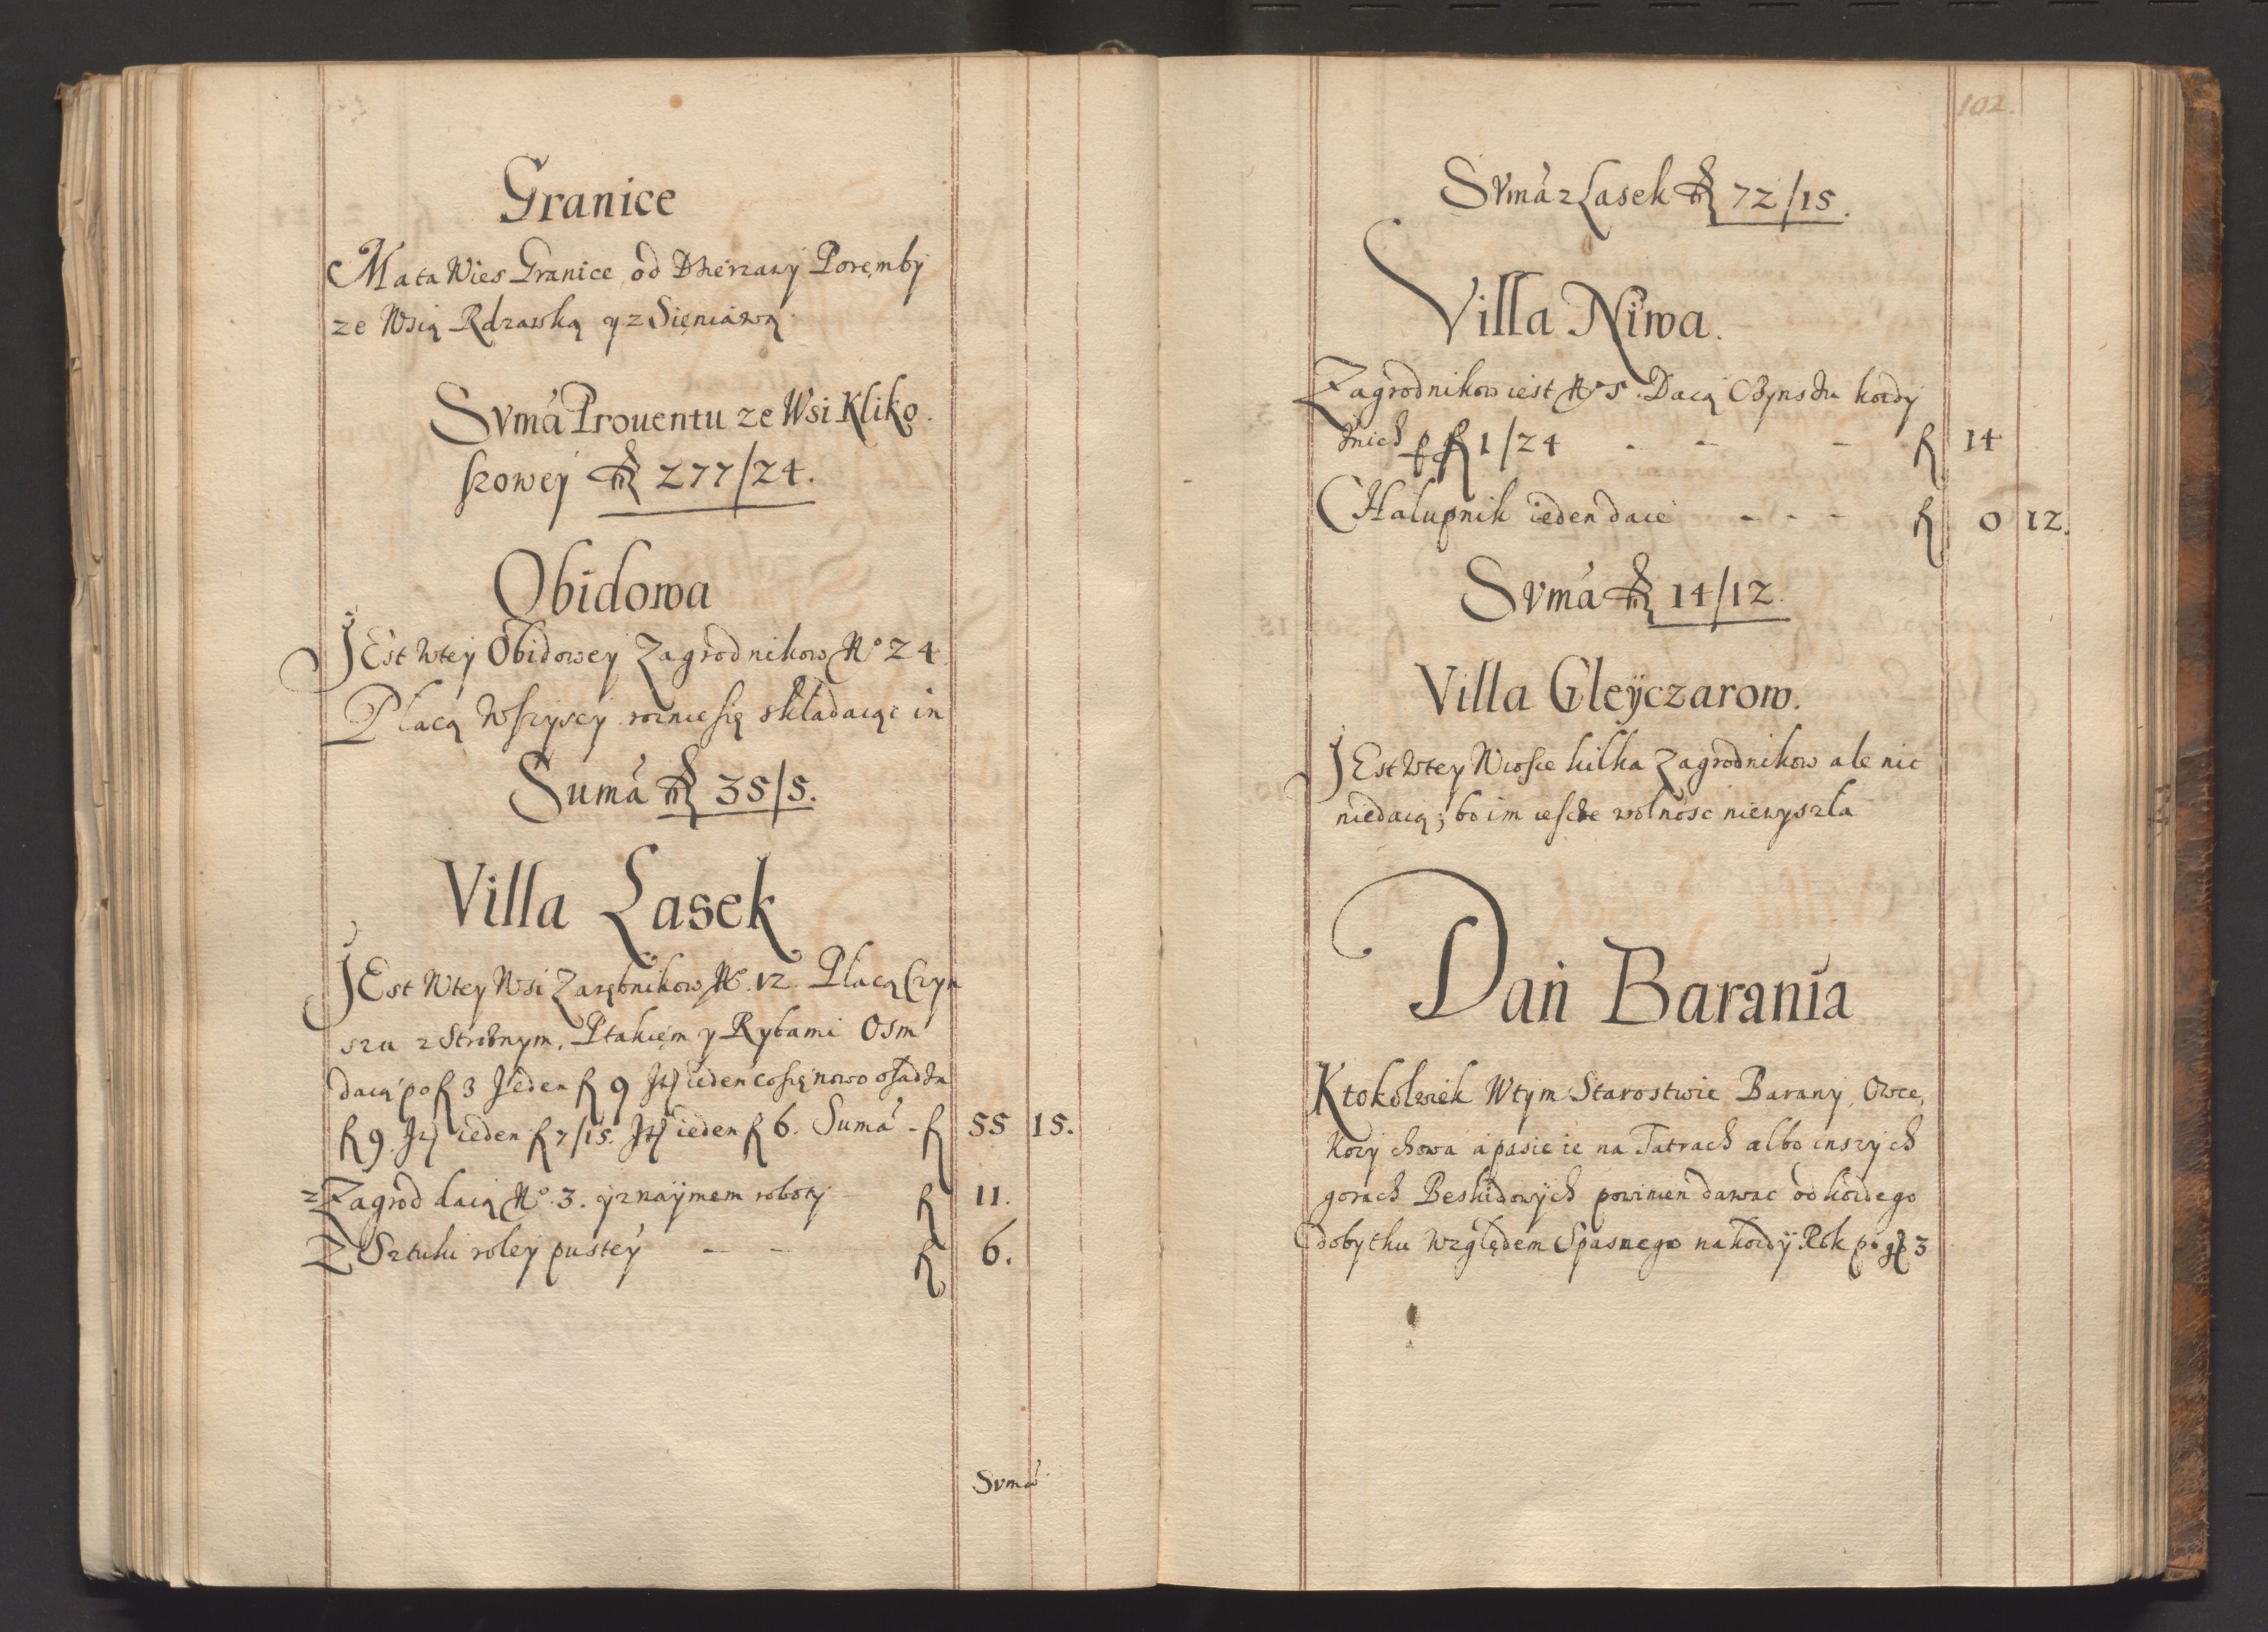 Granice
Mata Wies Granice od Dherzawy Poręmby
ze Wsią Rdzawką y z Sięniawą
Svmá Prouentu ze Wsi Kliko
szowey fl 277/24.
Obidowa
JEst wtey Obidowey Zagrodnikow No 24
Płacą Wszyscy roznie się składaiąc in
Sumá fl 35/5.
Villa Lasek
JEst Wtey Wsi Zarębnikow No. 12. Płacą Czyn
szu z Strobnym, Ptakięm y Rybami Osm
daią po fl 3 Jeden fl 9 Jtt ieden co się nowo osadził
fl 9. Jtt ieden fl 7/15. Jtt ieden fl 6. Sumá - fl 55 15.
z Zagrod daią No. 3. y z naymem roboty fl 11.
Z Sztuki roley pustey - - fl 6.
Svmá
102.
Svmá z Lasek fl 72/15.
Villa Niwa.
Zagrodnikow iest No 5. Daią Czynszu kożdy
znich p fl 1/24 - - - fl 14
CHałupnik ieden daie - - - fl 0 12.
Svmá fl 14/12.
Villa Gleyczarow.
JEst wtey Wiosce kilka Zagrodnikow ale nic
niedaią; bo im ieszcze wolnosc niewyszła
Dań Barania
Ktokolwiek Wtym Starostwie Barany, Owce,
Kozy chowa á pasie ie na Tatrach albo inszych
gorach Beskidowych powinien dawac od kożdego
dobytku względem Spasnego na kożdy Rok po gr 3